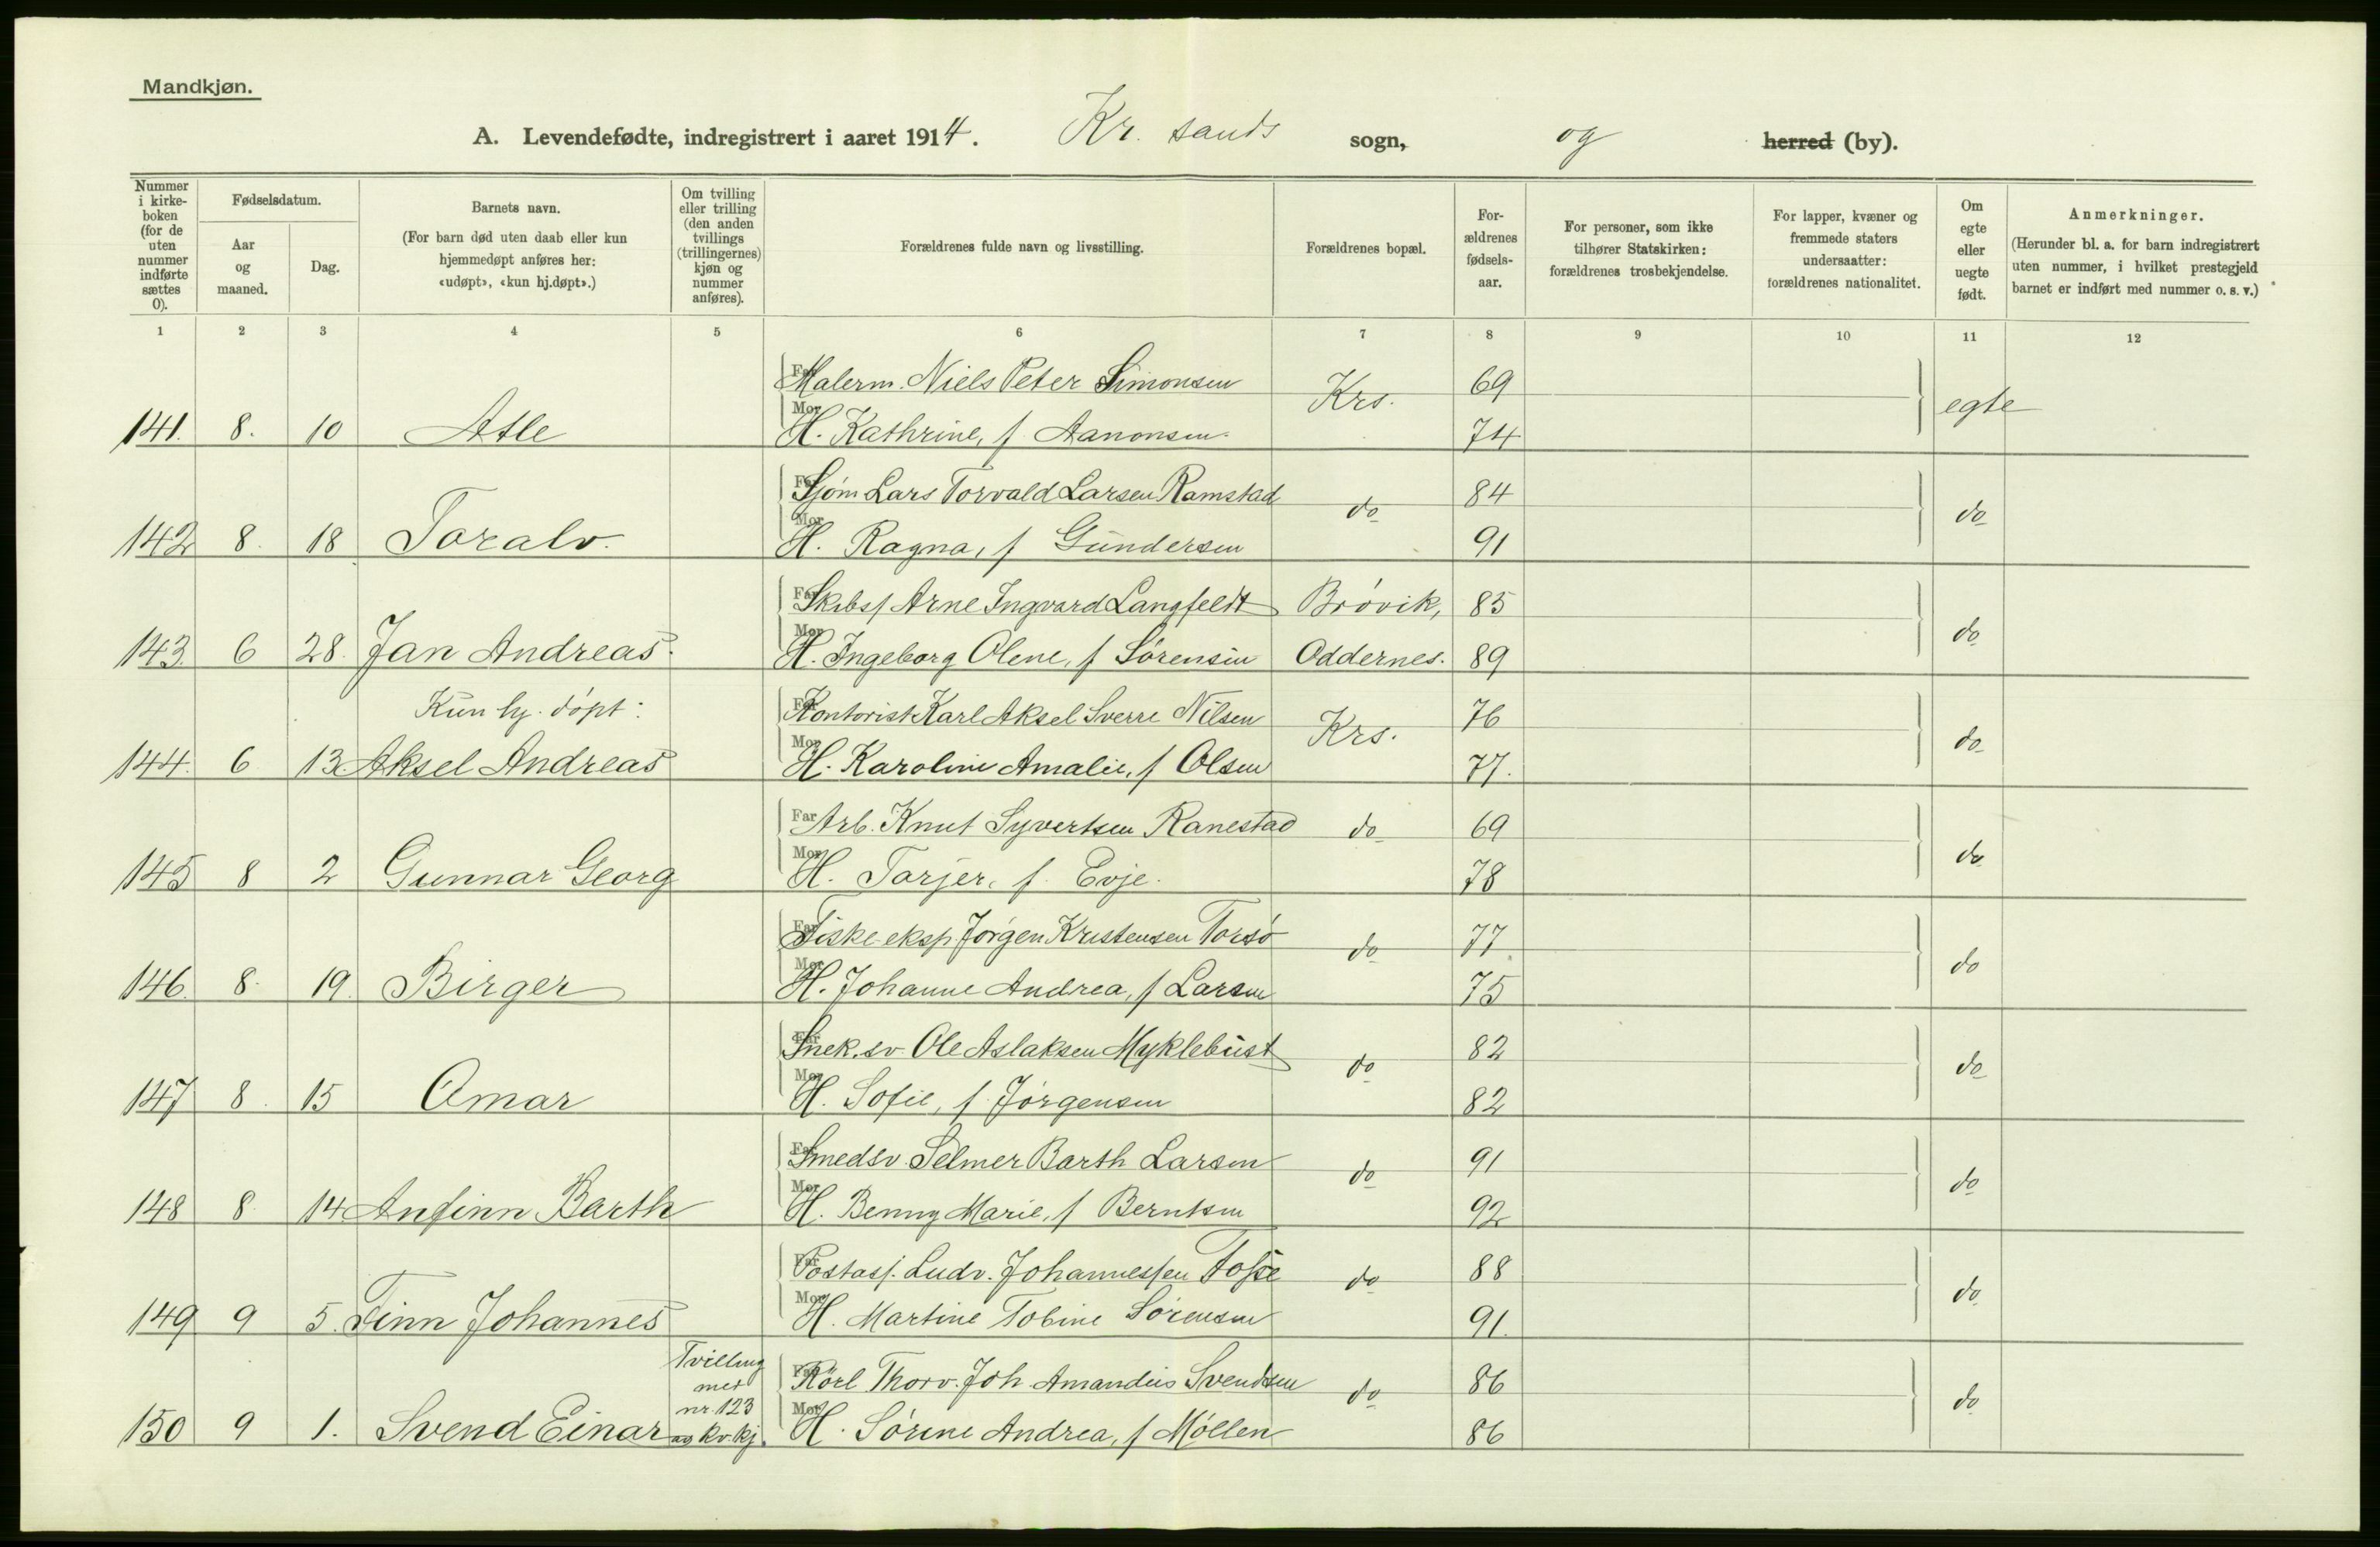 Mandkjøn.
A. Levendefødte, indregistrert i aaret 1914. Kr. sands sogn, og herred (by).
Nummer i kirkeboken (for de uten nummer indførte sættes 0).
Fødselsdatum.
Aar og maaned.
Dag.
Barnets navn.
(For barn død uten daab eller kun hjemmedøpt anføres her: «udøpt», «kun hj.døpt».)
Om tvilling eller trilling (den anden tvillings (trillingernes) kjøn og nummer anføres).
Forældrenes fulde navn og livsstilling.
Forældrenes bopæl.
Forældrenes fødselsaar.
For personer, som ikke tilhører Statskirken: forældrenes trosbekjendelse.
For lapper, kvæner og fremmede staters undersaatter: forældrenes nationalitet.
Om egte eller uegte født.
Anmerkninger.
(Herunder bl. a. for barn indregistrert uten nummer, i hvilket prestegjeld barnet er indført med nummer o. s. v.)
1 2 3 4 5 6 7 8 9 10 11 12
Far Malerm. Niels Peter Simonsen Krs. 69 egte
141. 8. 10 Atle Mor H. Kathrine, f Aanonsen. 74
Far Sjøm Lars Torvald Larsen Ramstad do 84 do
142 8. 18 Toralv. Mor H. Ragna, f Gundersen 91
Far Skibsf Arne Ingvard Langfeldt Brøvik, 85 do
143. 6 28. Jan Andreas. Mor H. Ingeborg Olene, f Sørensen Oddernes. 89
Kun hj. døpt: Far Kontorist Karl Aksel Sverre Nilsen Krs. 76 do
144. 6 13 Aksel Andreas Mor H. Karoline Amalie, f Olsen 77.
Far Arb. Knut Syvertsen Ranestad do 69 do
145 8 2 Gunnar Georg Mor H. Tarjer, f. Evje. 78
Far Fiske eksp. Jørgen Kristensen Torsø do 77 do
146. 8. 19. Birger Mor H. Johanne Andrea, f Larsen 75
Far Snek.sv. Ole Aslaksen Myklebust do 82 do
147 8. 15 Omar Mor H. Sofie, f. Jørgensen 82
Far Smedsv. Selmer Barth Larsen do 91 do
148 8. 14 Anfinn Barth Mor H. Benny Marie, f Berntsen 92
Far Postasf. Ludv. Johannessen Fosse do 88 do
149 9 5. Finn Johannes Mor H. Martine Tobine Sørensen 91.
Tvilling met nr. 123 Far Rørl Thorv. Joh. Amandus Svendsen do 86 do
150 9 1. Svend Einar ag kv. kj. Mor H. Sørine Andrea, f Møllen 86